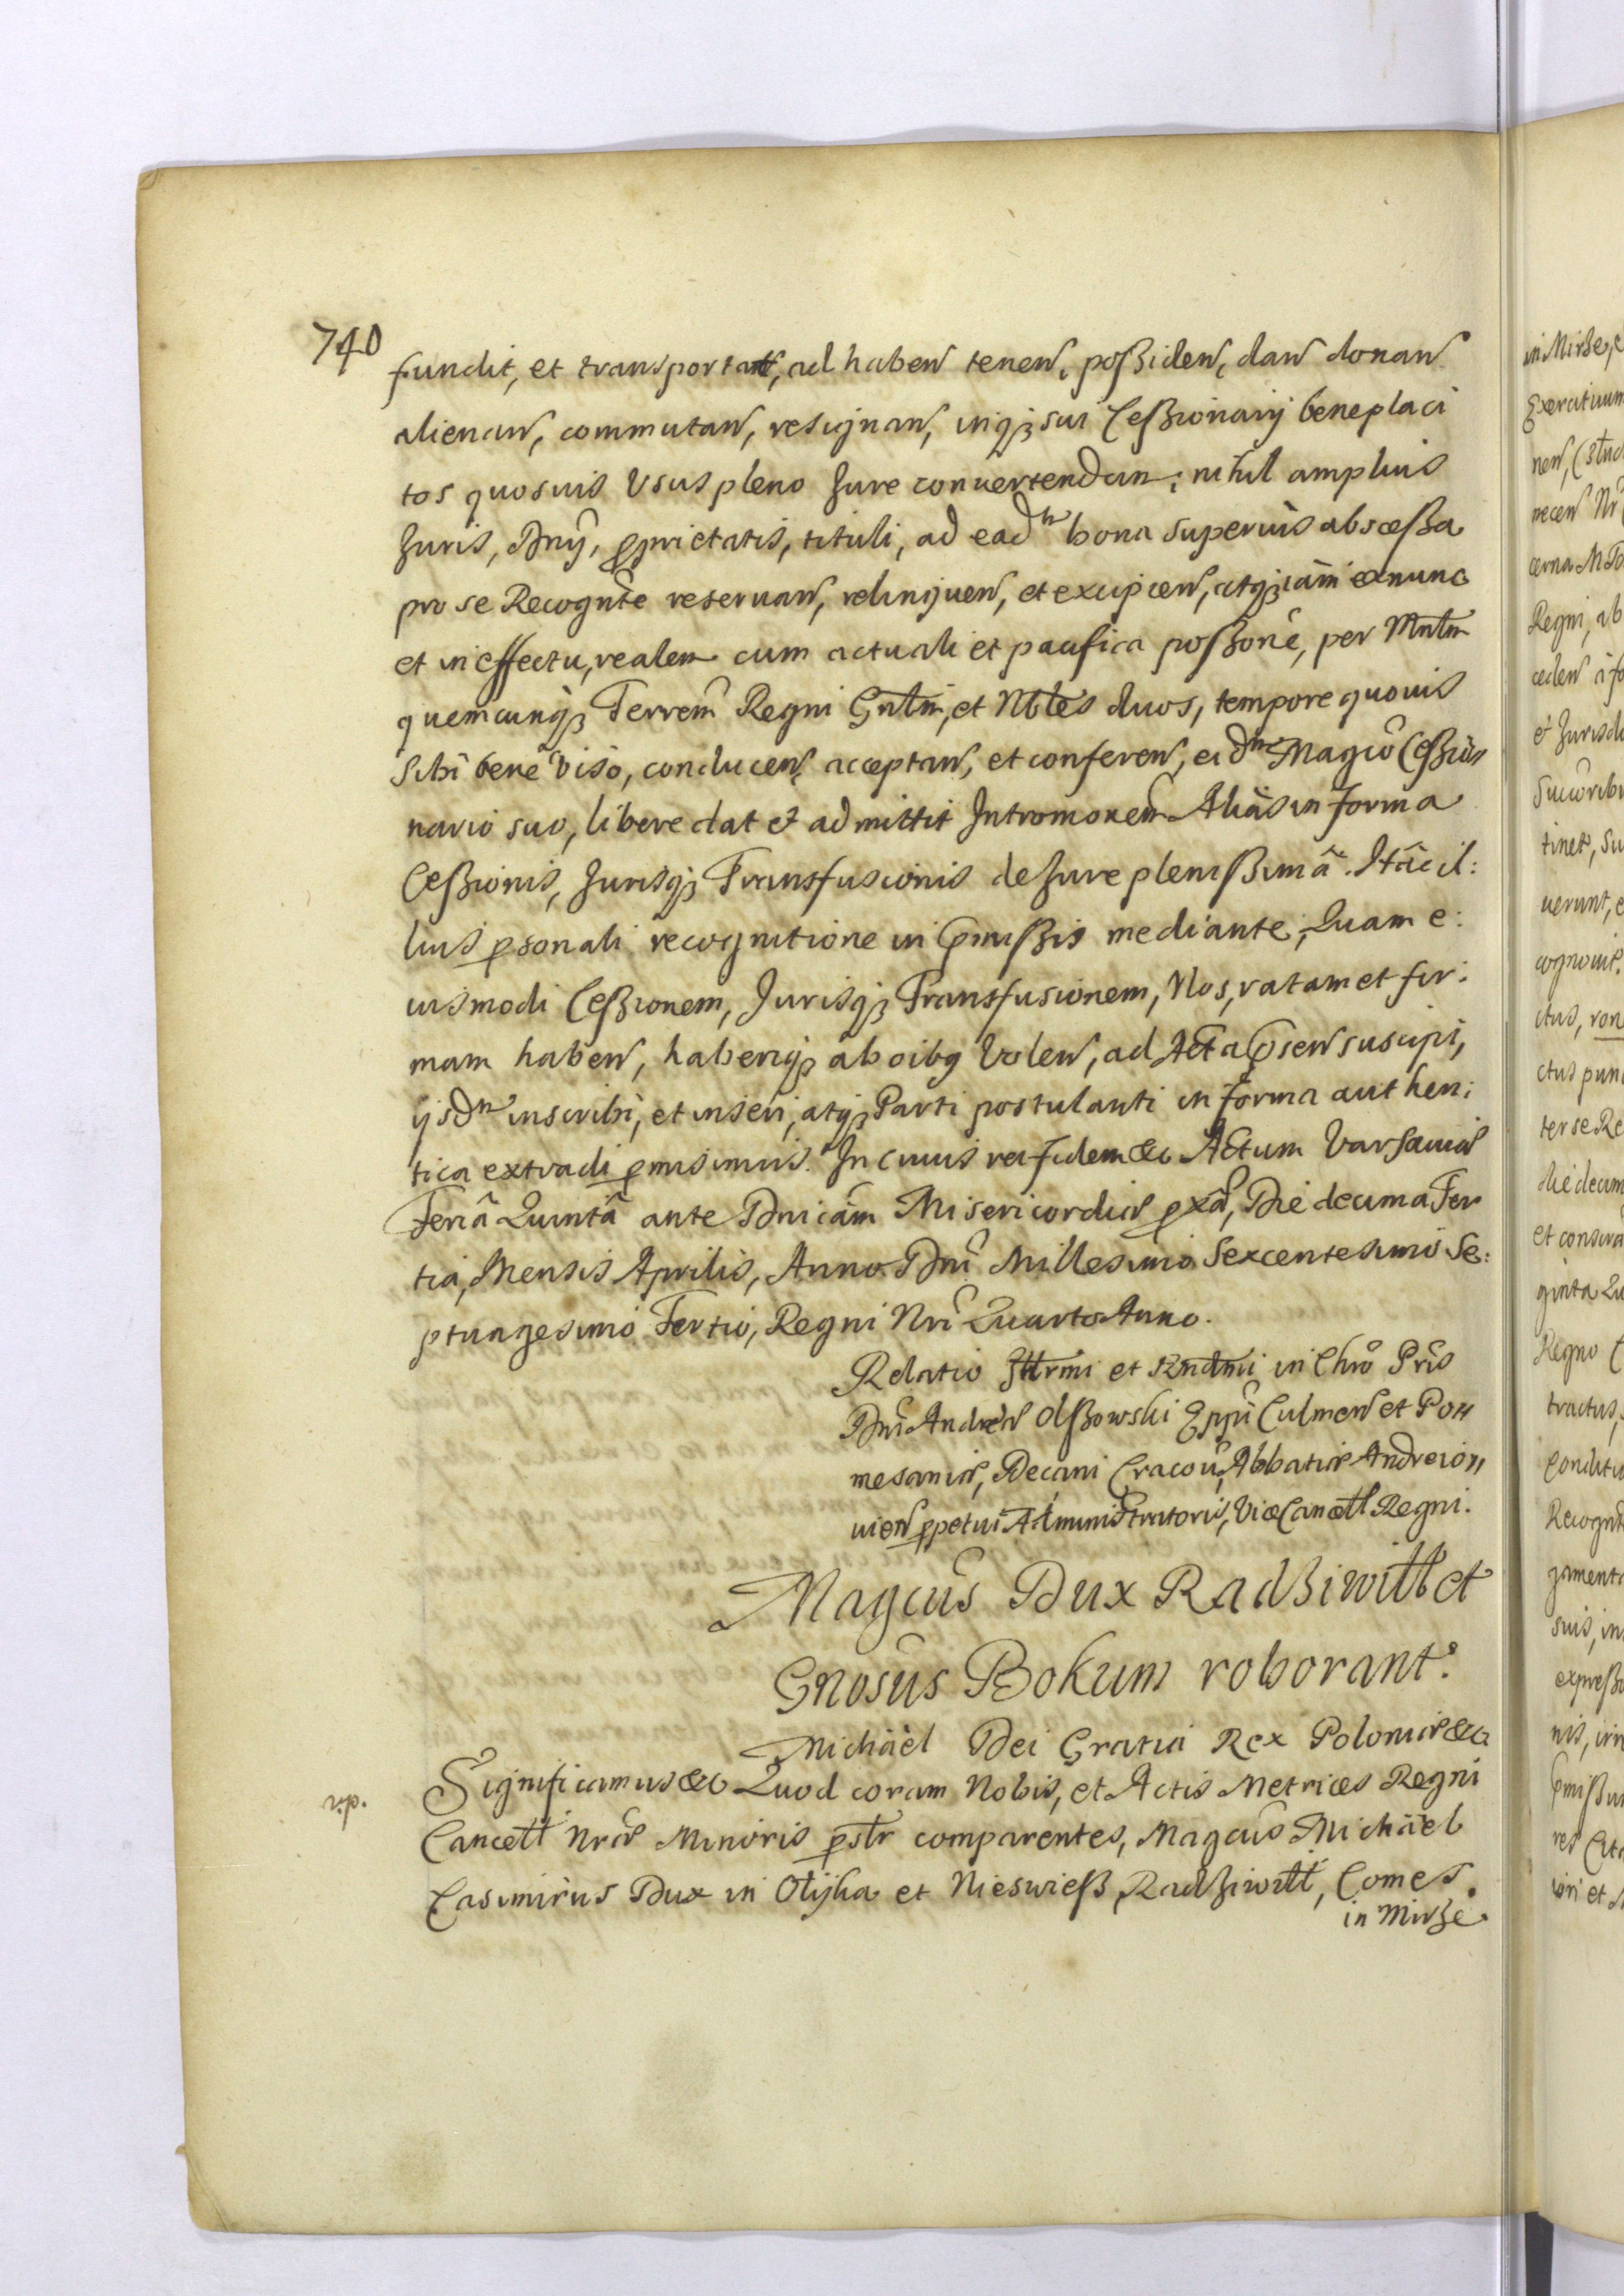 740
fundit, et transportat, ad haben tenen, possiden, dan donan
alienan, commutan, resignan, inq₃ sui Cessionarij beneplaci
tos quosuis Usus pleno Jure conuertendan: nihil amplius
Juris, Dnÿ, pprietatis, tituli, ad eadm bona superius abscessa
pro se Recognte reseruan, relinquen, et excipien, atq₃ iam exnunc
et in effectu, realem cum actuali et pacifica possone, per Mntm
quemcunq₃ Terrem Regni Gnlm, et Nbles duos, tempore quouis
Sibi bene viso, conducen, acceptan, et conferen, eidm Magco Cessio
nario suo, libere dat et admittit Intromonem Alias in forma
Cessionis, Jurisq₃ Transfusionis de Jure plenissima. Itaeil:
lius psonali recognitione in pmissis mediante, Quam e:
iusmodi Cessionem, Jurisq₃ Transfusionem, Nos, ratam et fir:
mam haben, haberiq₃ ab oibq Volen, ad Acta psen suscipi,
ijsdm inscribi, et inseri, atq₃ Parti postulanti in forma authen:
tica extradi pmisimus. In cuius rei fidem &c Actum Varsauiæ
Feria Quinta ante Dnicam Misericordiæ pxa, Die decima Ter
tia, Mensis Aprilis, Anno Dni Millesimo Sexcentesimo Se:
ptuagesimo Tertio, Regni Nri Quarto Anno.
Relatio Illrmi et Rndmi in Chro Pris
Dni Andreæ Olszowski Eppi Culmen et Pom
mesaniæ, Decani Cracou, Abbatiæ Andreio
uien ppetui Administratoris, ViceCancell Regni.
Magcus Dux Radziwill et
Gnosus Bokum roborant.
Michael Dei Gratia Rex Poloniæ &c
r.p. Significamus &c Quod coram Nobis, et Actis Metrices Regni
Cancell Nræ Minoris pslr comparentes, Magcus Michael
Casimirus Dux in Olyka et Nieswiesz, Radziwill, Comes
in Mirze